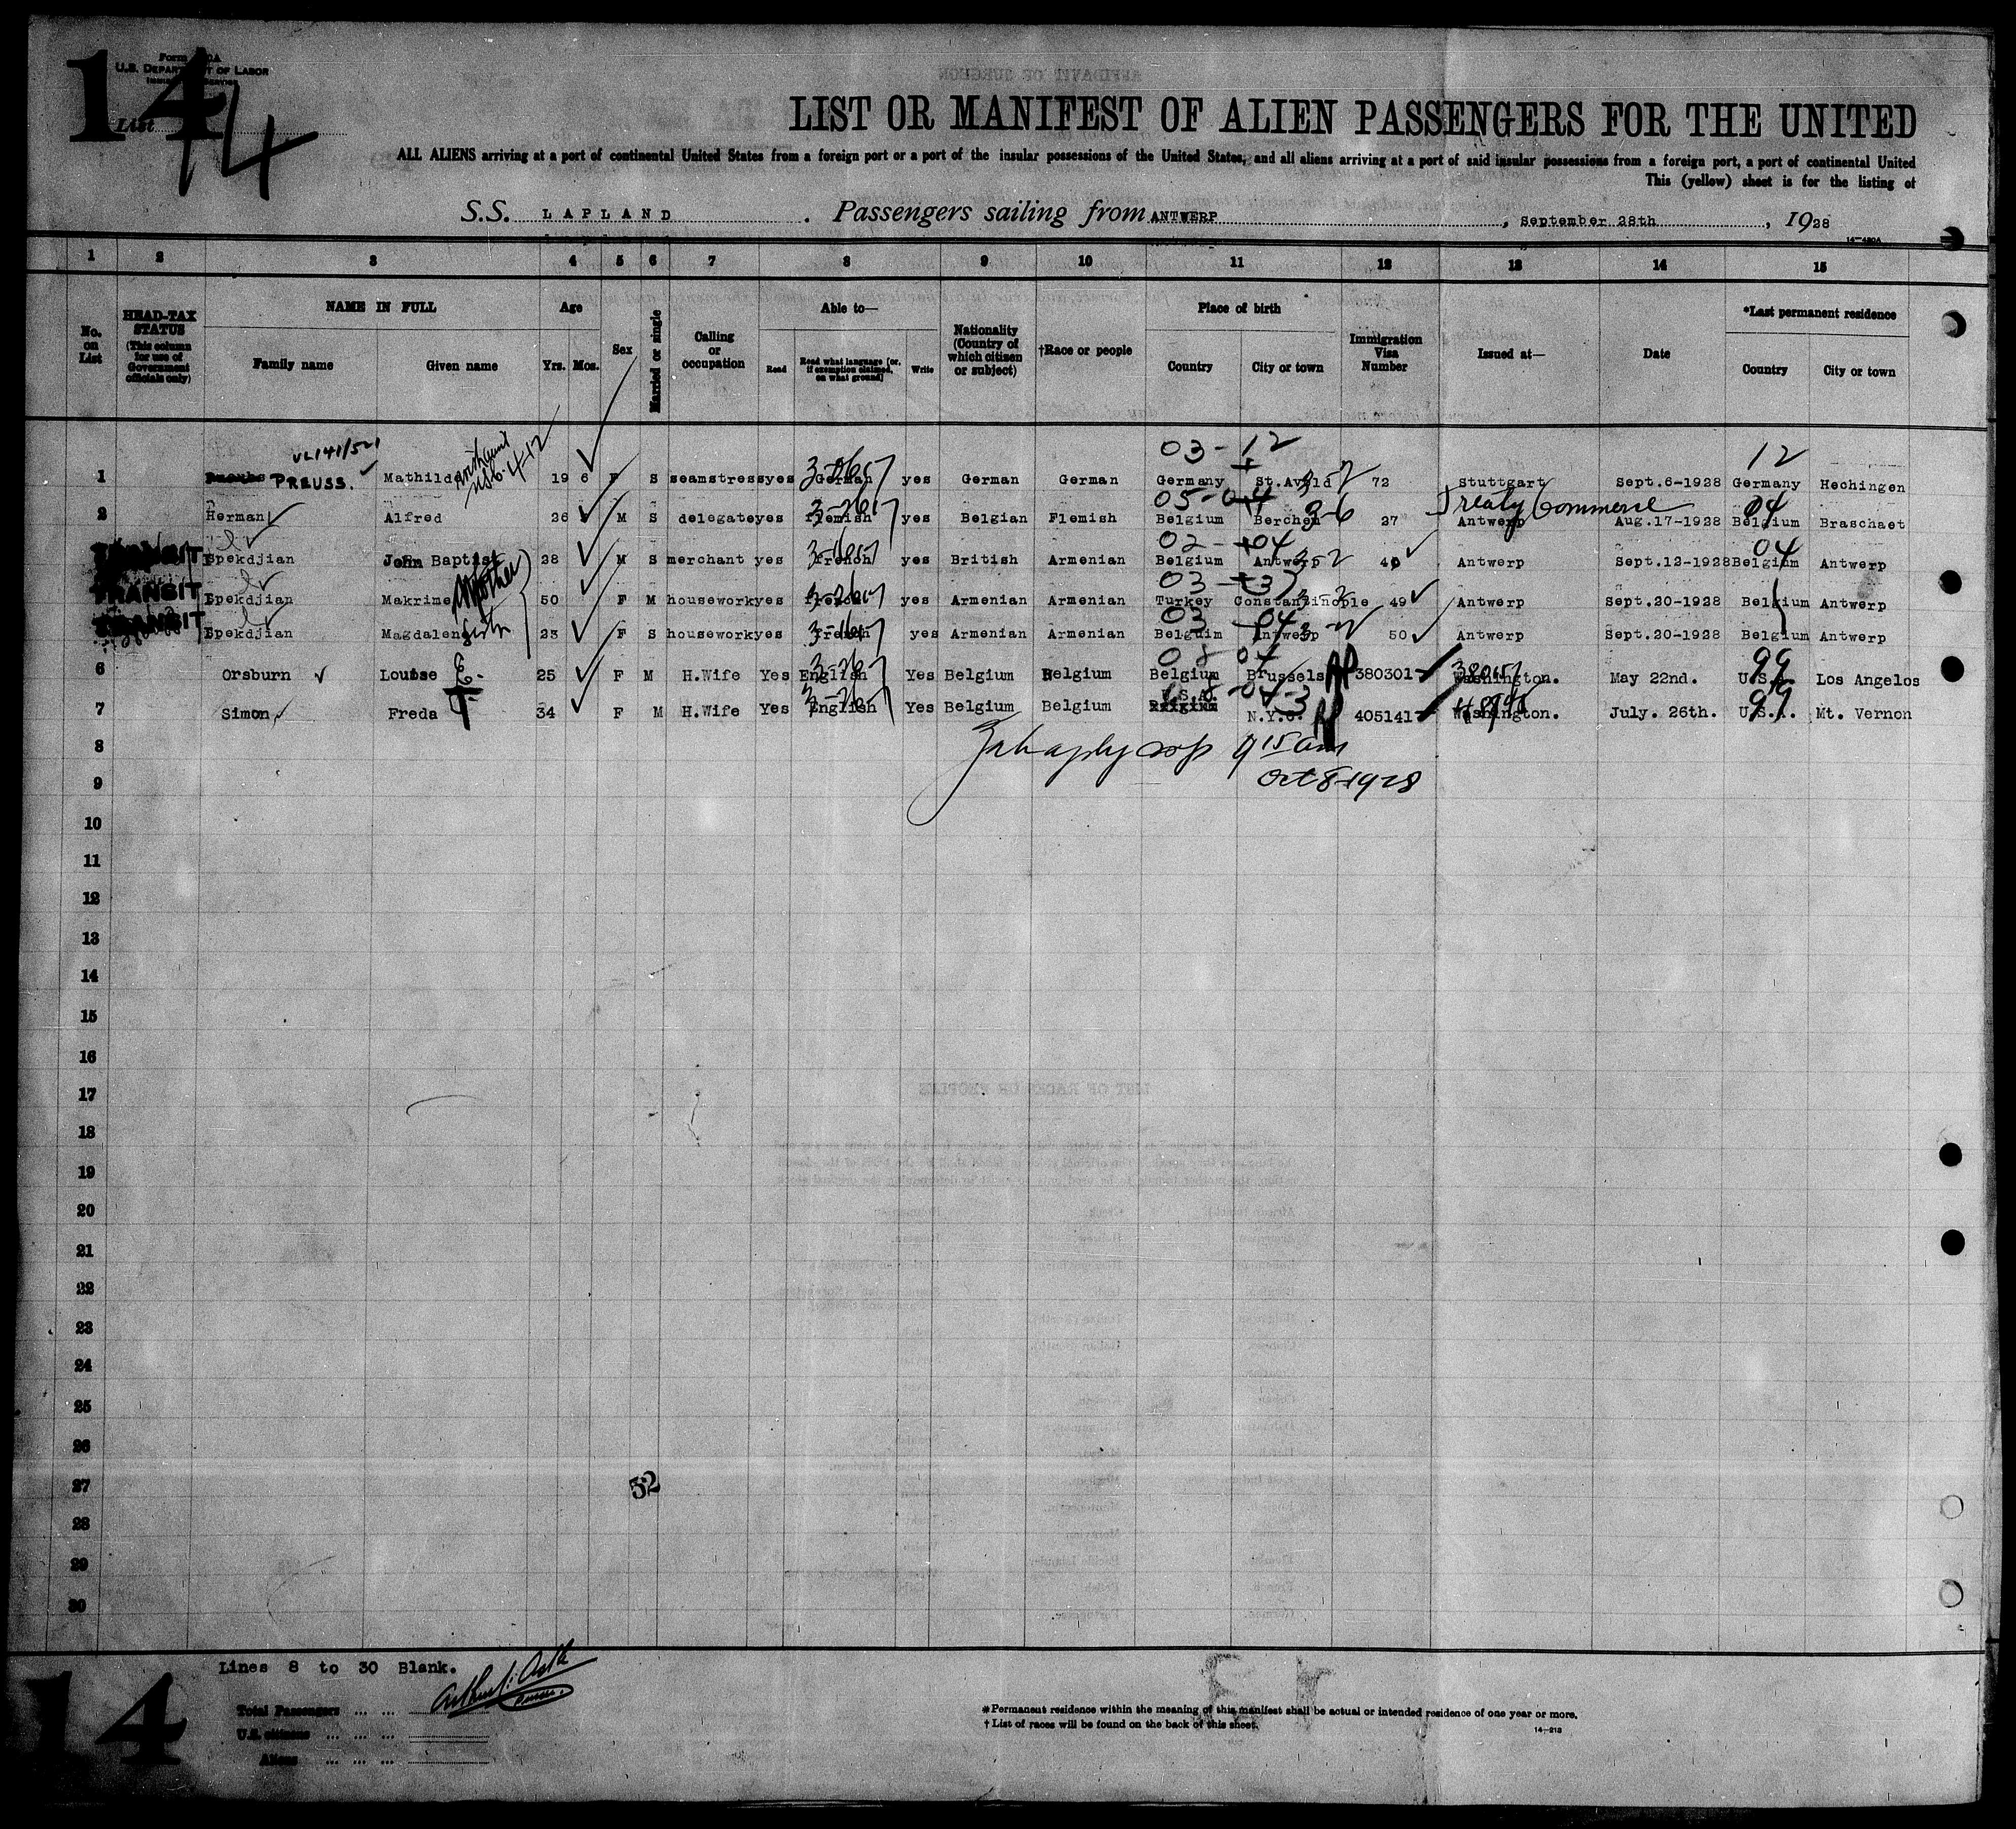 14
Form
U.S. DEPARTMENT OF LABOR
IMMIGRATION SERVICE
List 14
LIST OR MANIFEST OF ALIEN PASSENGERS FOR THE UNITED
ALL ALIENS arriving at a port of continental United States from a foreign port or a port of the insular possessions of the United States, and all aliens arriving at a port of said insular possessions from a foreign port, a port of continental United
This (yellow) sheet is for the listing of
S.S. LAPLAND. Passengers sailing from ANTWERP, September 28th, 1928
14-480A
1 2 3 4 5 6 7 8 9 10 11 12 13 14 15
No. on List
HEAD-TAX STATUS (This column for use of Government officials only)
NAME IN FULL
Family name Given name
Age
Yrs. Mos.
Sex
Married or single
Calling or occupation
Able to—
Read Read what language [or, if exemption claimed, on what ground] Write
Nationality (Country of which citizen or subject)
†Race or people
Place of birth
Country City or town
Immigration Visa Number
Issued at—
Date
*Last permanent residence
Country City or town
03-12 12
1 PREUSS. Mathilde 19 6 F S seamstress yes German yes German German Germany St.Avold 72 Stuttgart Sept.6-1928 Germany Hechingen
Treaty Commerce
2 Herman Alfred 26 M S delegate yes Flemish yes Belgian Flemish Belgium Berchem 27 Antwerp Aug.17-1928 Belgium Braschaet
TRANSIT Epekdjian John Baptist 28 M S merchant yes French yes British Armenian Belgium Antwerp Antwerp Sept.12-1928 Belgium Antwerp
TRANSIT Epekdjian Makrime Mother 50 F M housework yes French yes Armenian Armenian Turkey Constantinople 49 Antwerp Sept.20-1928 Belgium Antwerp
TRANSIT Epekdjian Magdalen Sister 23 F S housework yes French yes Armenian Armenian Belguim Antwerp 50 Antwerp Sept.20-1928 Belgium Antwerp
6 Orsburn Louise E. 25 F M H.Wife Yes English Yes Belgium Belgium Belgium Brussels 380301 Washington. May 22nd. U.S.A. Los Angelos
7 Simon Freda 34 F M H.Wife Yes English Yes Belgium Belgium U.S.A. N.Y.C. 405141 Washington. July. 26th. U.S.A. Mt. Vernon
8 9 15 am
9 Oct 8-1928
10
11
12
13
14
15
16
17
18
19
20
21
22
23
24
25
26
27 52
28
29
30
Lines 8 to 30 Blank.
14
Total Passengers ... ...
U.S. citizens ... ... ...
Aliens ... ... ...
*Permanent residence within the meaning of this manifest shall be actual or intended residence of one year or more.
†List of races will be found on the back of this sheet.
14-213